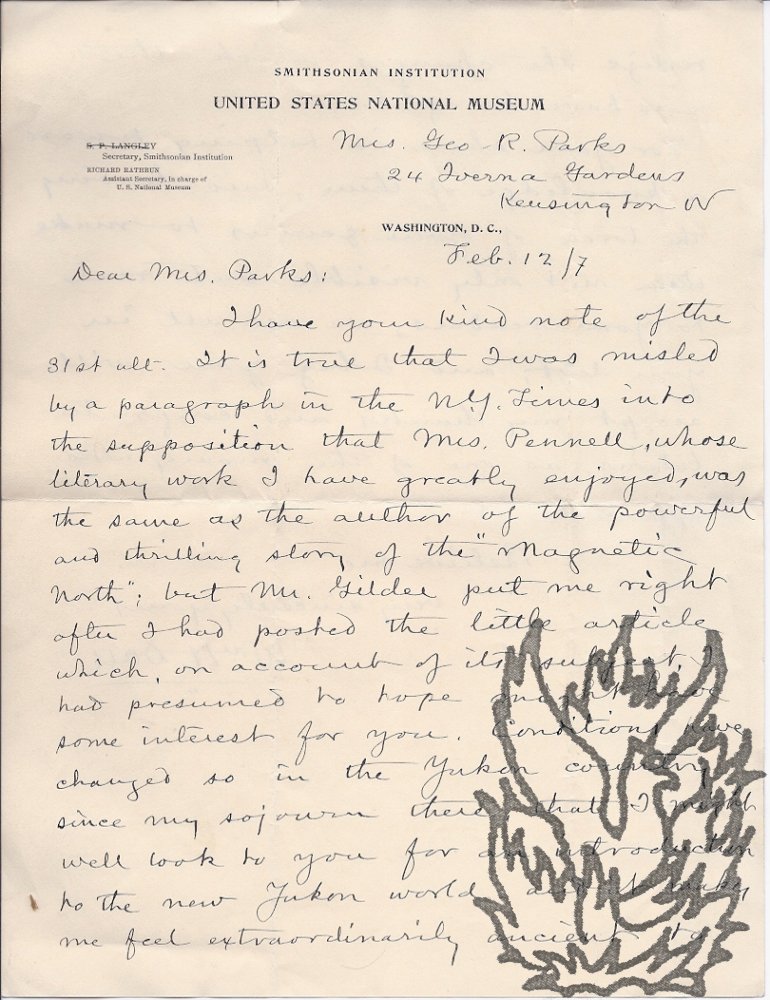 SMITHSONIAN INSTITUTION
UNITED STATES NATIONAL MUSEUM
S. P. LANGLEY
Secretary, Smithsonian Institution
RICHARD RATHBUN
Assistant Secretary, in charge of
U. S. National Museum
Mrs. Geo. R. Parks
24 Iverna Gardens
Kensington W
WASHINGTON, D. C.,
Feb. 12/7
Dear Mrs. Parks:
I have your kind note of the
31st ult. It is true that I was misled
by a paragraph in the N.Y. Times into
the supposition that Mrs. Pennell, whose
literary work I have greatly enjoyed, was
the same as the author of the powerful
and thrilling story of the "Magnetic
North"; but Mr. Gilder put me right
after I had posted the little article
which, on account of its subject, I
had presumed to hope might have
some interest for you. Conditions have
changed so in the Yukon country
since my sojourn there that I might
well look to you for an introduction
to the new Yukon world and it makes
me feel extraordinarily ancient to